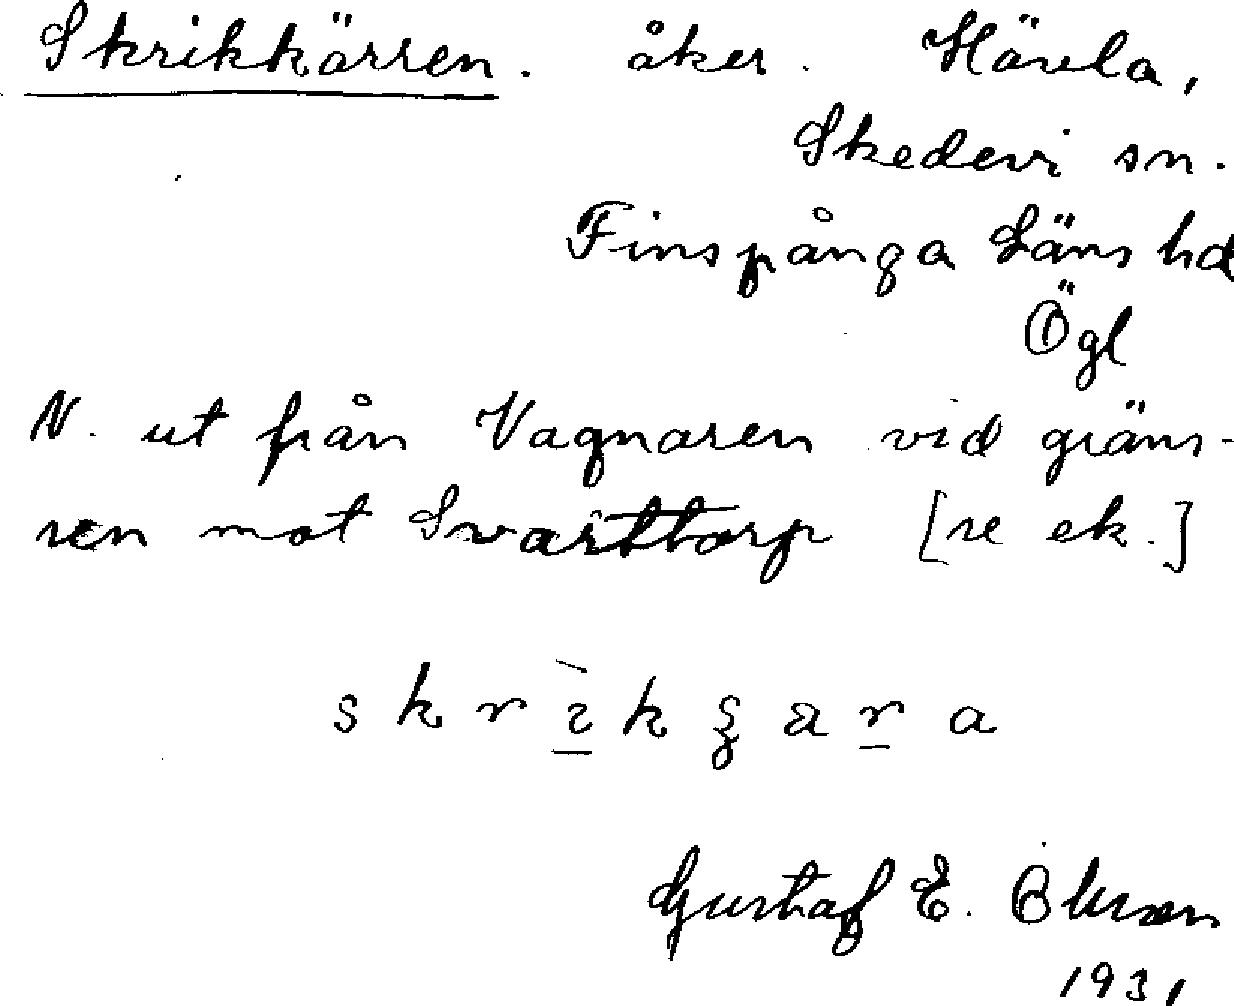 Skrikkärren. åker. Hävla,
Skedevi sn.
Finspånga Läns hd
Ögl
N. ut från Vagnaren vid gräns-
sen mot Svarttorp [se ek.]
Gustaf E.
1931